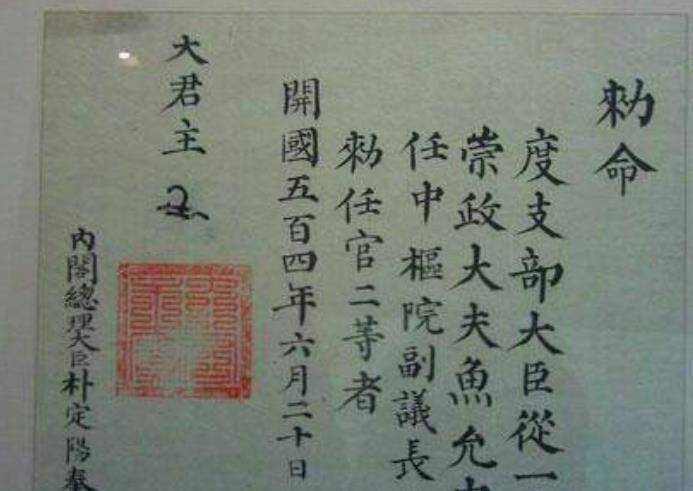 勅命
度支部大臣從一
崇政大夫魚允
任中樞院副議長
勅任官二等者
開國五百四年六月二十日
大君主
內閣總理大臣朴定陽奉